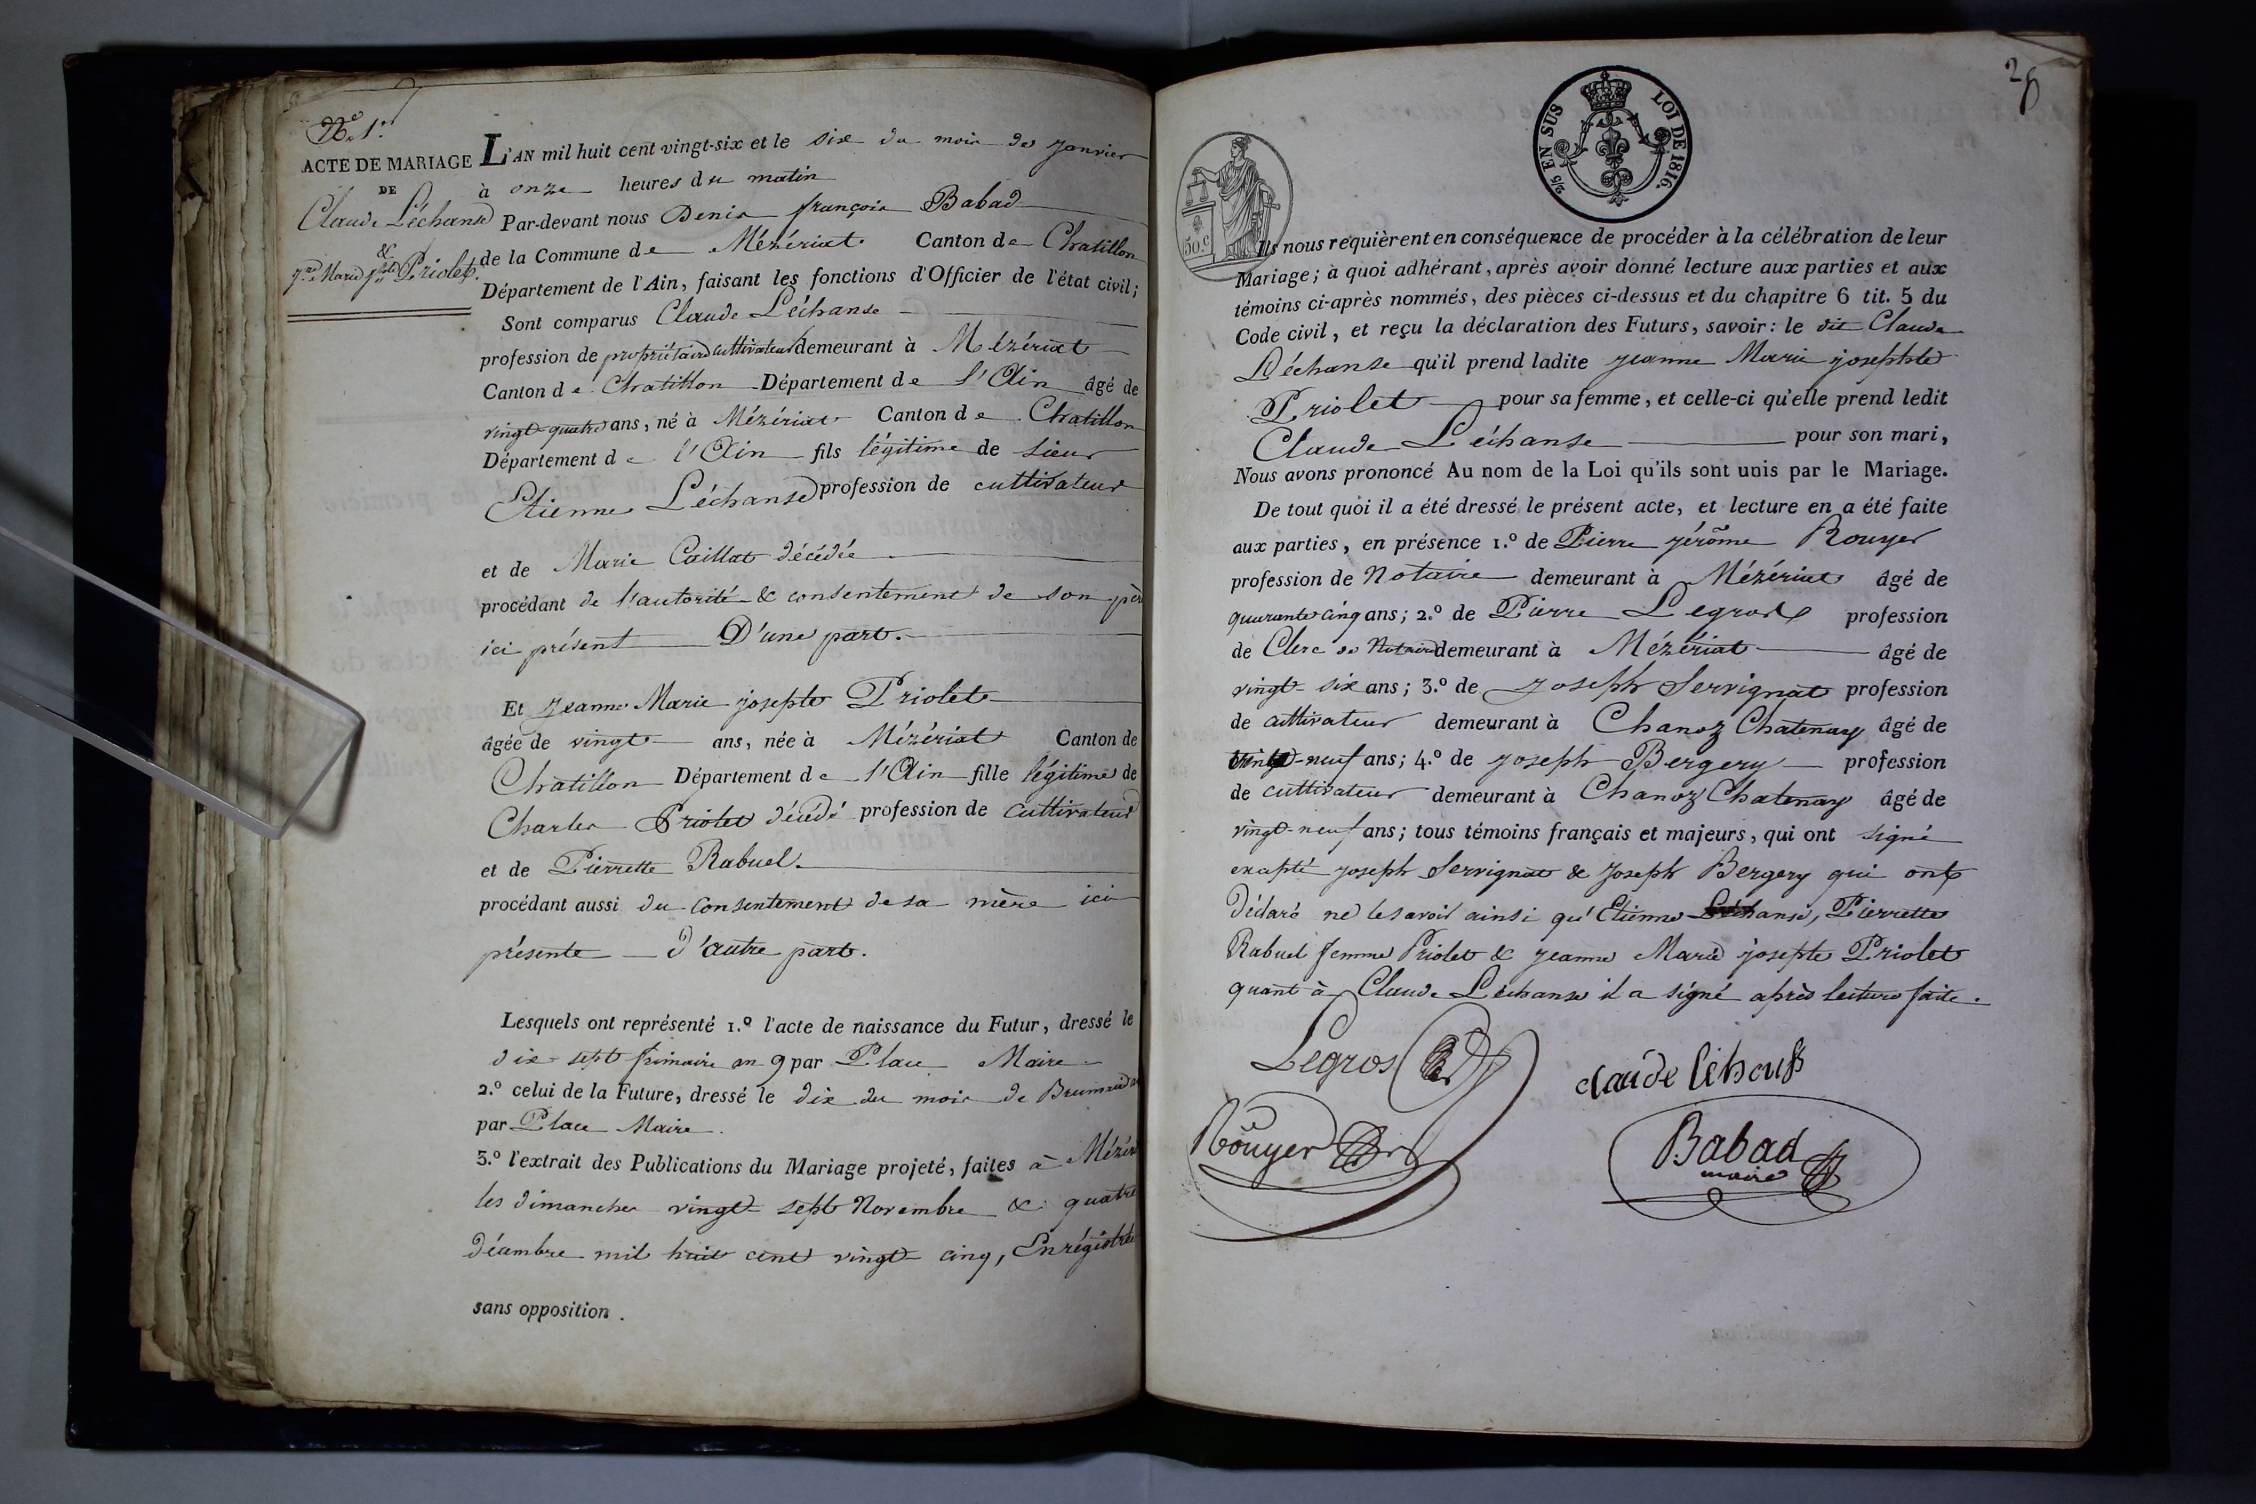 N.° 1.er
ACTE DE MARIAGE
DE
Claude Léchanse
&
J.ne Marie J.phte Priolet.
L'AN mil huit cent vingt-six et le six du mois de janvier
à onze heures du matin
Par-devant nous Denis françois Babad
de la Commune de Mézériat Canton de Chatillon
Département de l'Ain, faisant les fonctions d'Officier de l'état civil;
Sont comparus Claude Léchanse
profession de propriétaire cultivateur demeurant à Mézériat
Canton de Chatillon Département de l'Ain âgé de
vingt quatre ans, né à Mézériat Canton de Chatillon
Département de l'Ain fils légitime de sieur
Etienne Léchanse profession de cultivateur
et de Marie Caillat décédée
procédant de l'autorité & consentement de son père
ici présent D'une part.
Et jeanne Marie josephte Priolet
âgée de vingt ans, née à Mézériat Canton de
Chatillon Département de l'Ain fille légitime de
Charles Priolet décédé profession de cultivateur
et de Pierrette Rabuel.
procédant aussi du consentement de sa mère ici
présente d'autre part.
Lesquels ont représenté 1.° l'acte de naissance du Futur, dressé le
dix-sept frimaire an 9 par Place Maire
2.° celui de la Future, dressé le dix du mois de Brumaire
par Place Maire.
3.° l'extrait des Publications du Mariage projeté, faites à
les dimanches vingt-sept Novembre & quatre
décembre mil huit cent vingt cinq, Enrégistrées
sans opposition.
28
2/5 EN SUS LOI DE 1816.
50.c
Ils nous requièrent en conséquence de procéder à la célébration de leur
Mariage; à quoi adhérant, après avoir donné lecture aux parties et aux
témoins ci-après nommés, des pièces ci-dessus et du chapitre 6 tit. 5 du
Code civil, et reçu la déclaration des Futurs, savoir: le dit Claude
Léchanse qu'il prend ladite jeanne Marie josephte
Priolet pour sa femme, et celle-ci qu'elle prend ledit
Claude Léchanse pour son mari,
Nous avons prononcé Au nom de la Loi qu'ils sont unis par le Mariage.
De tout quoi il a été dressé le présent acte, et lecture en a été faite
aux parties, en présence 1.° de Pierre jérôme Rouyer
profession de Notaire demeurant à Mézériat âgé de
quarante cinq ans; 2.° de Pierre Legros profession
de Clerc de Notaire demeurant à Mézériat âgé de
vingt-six ans; 3.° de joseph Servignat profession
de cultivateur demeurant à Chanoz Chatenay âgé de
-neuf ans; 4.° de joseph Bergery profession
de cultivateur demeurant à Chanoz Chatenay âgé de
vingt-neuf ans; tous témoins français et majeurs, qui ont signé
excepté joseph Servignat & joseph Bergery qui ont
déclaré ne le savoir ainsi qu'Etienne Léchanse, Pierrette
Rabuel femme Priolet & jeanne Marie josephte Priolet
quant à Claude Léchanse il a signé après lecture faite.
Legros
claude
Rouyer
Babad
maire